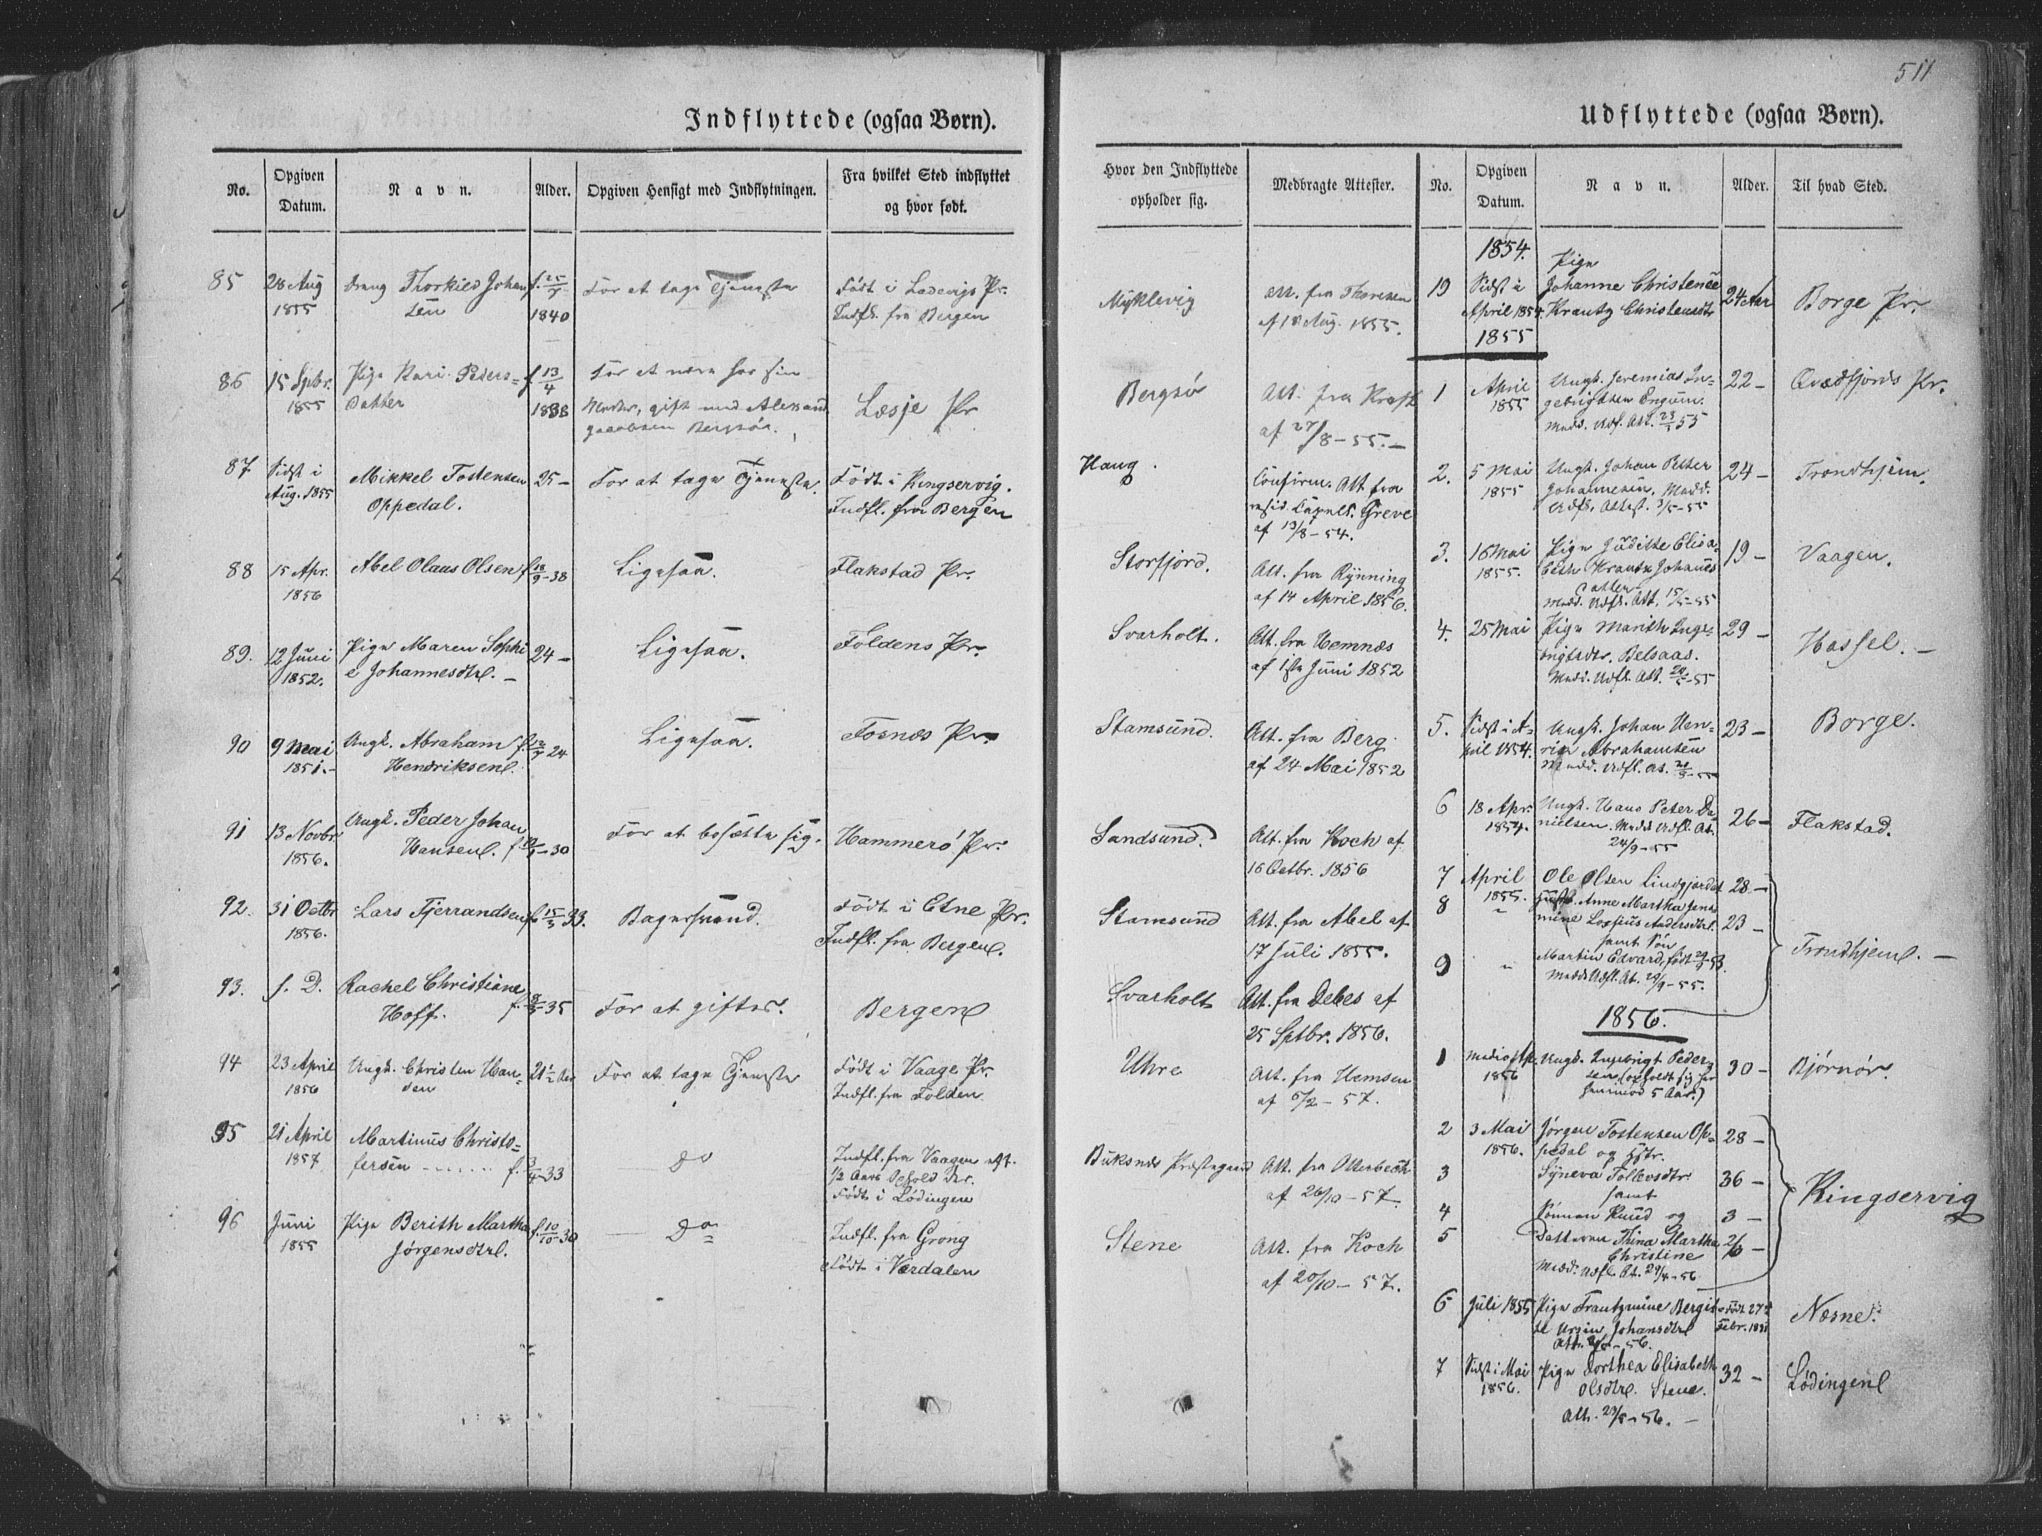 511
Indflyttede (ogsaa Børn).
No.
Opgiven
Datum.
Navn.
Alder.
Opgiven Hensigt med Indflytningen.
Fra hvilket Sted indflyttet
og hvor født.
85
28 Aug
1855
Dreng Thorkild Johan
sen
f. 25/5
1840
For at tage Tjeneste
Født i Ladevigs Pr.
Indfl. fra Bergen
86
15 Spbr.
1855
Pige Kari Peders-
Datter
f. 13/4
1838
For at være hos sin
Moder, gift med
Jacobsen Bergsøe.
Læsje Pr
87
Sidst i
Aug. 1855
Mikkel Tostensen
Oppedal.
25-
For at tage Tjeneste.
Født i Kingservig.
Indfl. fra Bergen
88
15 Apr.
1856
Abel Olaus Olsen
f. 18/9-38
Ligesaa.
Flakstad Pr.
89.
12 Juni
1852.
Pige Maren Sophi
e Johannesdtr. -
24-
Ligesaa.
Foldens Pr.
90
9 Mai
1851.-
Ungk. Abraham
Hendriksen.
24
Ligesaa.
Fosnes Pr.
91
13 Novbr
1856.
Ungk. Peder Johan
Hansen.
30
For at bosætte sig.
Hammerø Pr.
92.
31 Octbr
1856.
Lars Tjerrandsen
f. 15/3-33.
Bagersvend.
Født i Etne Pr.
Indfl. fra Bergen.
93.
s. D.
Rachel Christiane
Hoff.
35
For at giftes.
Bergen
94
23 April
1856
Ungk. Christen Han-
sen
21 1/2 Aar
For at tage Tjeneste
Født i Vaage Pr.
Indfl. fra Folden
95
21 April
1857
Martinus Christo-
fersen
f. 3/4-33
Do
Indfl. fra Vaagen eft.
1/2 Aars Ophold der.
Født i Lødingen
96
Juni
1855
Pige Berith Martha
Jørgensdtr.
f. 10/10-30
Do
Indfl. fra Grong
Født i Værdalen
Udflyttede (ogsaa Børn).
Hvor den Indflyttede
opholder sig.
Medbragte Attester.
No.
Opgiven
Datum.
Navn.
Alder.
Til hvad Sted.
Myklevig
Att. fra Thoresen
af 18 Aug. 1855.
Bergsøe
Att. fra Kraft
af 27/8-55.-
Haug.
Confirm. Att fra
resid. Capell. Greve
af 13/8-54.
Storfjord.
Att. fra Rynning
af 14 April 1856.
Svarholt.
Att. fra Hemnæs
af 1ste Juni 1852
Stamsund.
Att. fra Berg
af 24 Mai 1852
Sandsund.
Att. fra Koch af
16 Octbr. 1856
Stamsund
Att. fra Abel af
17 Juli 1855.
Svarholt
Att. fra Debes af
25 Sptbr. 1856.
Uhre
Att. fra Hemsen
af 6/2-57.
Buksnes Præstegaard
Att. fra Otterbech
af 26/10-57.
Stene
Att. fra Koch
af 20/10-57.
1854.
19
Sidst i
April 1854.
Pige
Johanne Christence
Krantz Christensdtr
24 Aar
Borge Pr.
1855
1
April
1855
Ungk. Jeremias In-
gebrigtsen Engum.
Medd. Udfl. Att. 23/3 55
22-
Qvædfjords Pr.
2.
5 Mai
1855
Ungk. Johan Peter
Johannesen, Medd.
Udfl. Attest. 3/5-55
24-
Trondhjem.
3.
16 Mai
1855.
Pige Judithe Elisa-
beth Krantz Johanes
Datter
Medd. Udfl. Att. 15/5-55
19-
Vaagen.
4.
25 Mai
Pige Marith Inge-
brigtsdtr. Belsaas.
Medd. Udfl. Att. 20/5-55
29-
Hassel.-
5.
Sidst i A-
pril 1854.
Ungk. Johan Hen-
rik Abrahamsen
Medd. Udfl. At.
23-
Borge.
6
18 Apr.
1854.
Ungk. Hans Peter Da
nielsen. Medd. Udfl. At.
24/9-55
26-
Flakstad.
7
April
1855.
Ole Olsen Lindgjordet
28-
8
"
Hustr. Anne Martha Jens
mine Losius Andersdtr.
samt Søn
23-
9
"
Martin Edvard, født
Medd. Udfl. At. 29/9-55.
Trondhjem.-
1856.
1
Medio Apr.
1856
Ungk. Ingebrigt Peder
sen (opholdt sig her
henimod 5 Aar.)
30-
Bjørnør.
2
3 Mai
1856.
Jørgen Tostensen Op-
pedal og Hstr.
28-
3
Syneva Tollevsdtr
samt
36-
4
Sønnen Knud og
3-
5
Datteren Thina Martha
Christine
Medd. Udfl. At. 29/4-56
2/10-
Kingservig
6
Juli 1855
Pige Frantzmine Bergit
te Ursin Johansdtr
Att. -56.
født 27de
Febr. 1831
Næsne.
7
Sidst i Mai
1856.
Pige Dorthea Elisabeth
Olsdtr. Stene.
Att. 23/5-56.-
32-
Lødingen